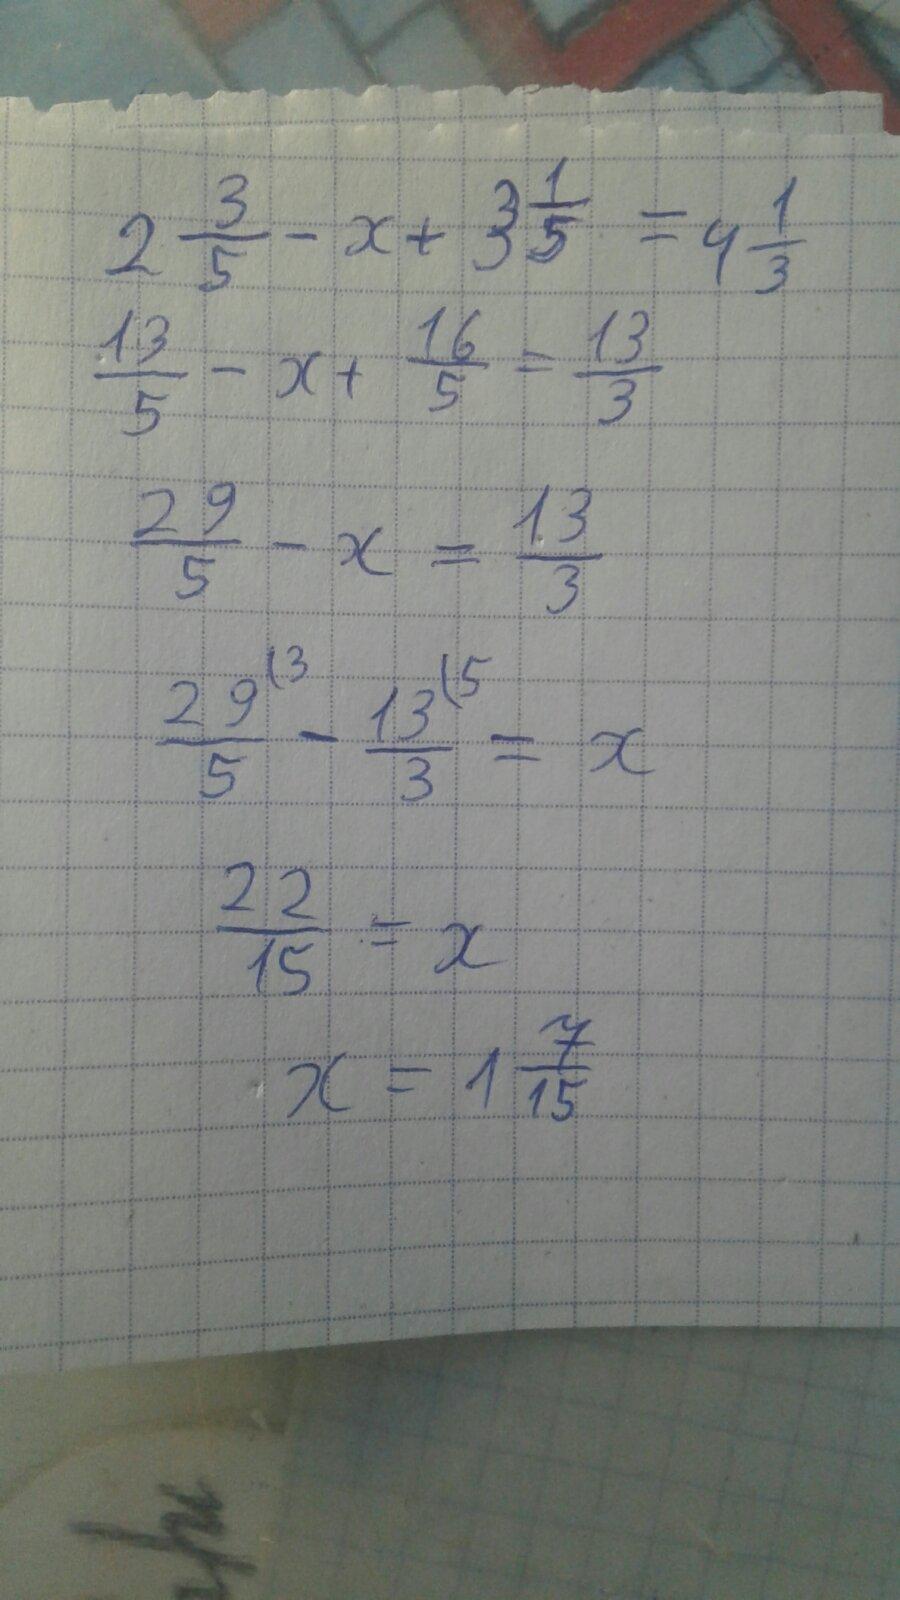 2 3/5 - x + 3 1/5 = 4 1/3
13/5 - x + 16/5 = 13/3
29/5 - x = 13/3
29(3/5 - 13(5/3 = x
22/15 = x
x = 1 7/15